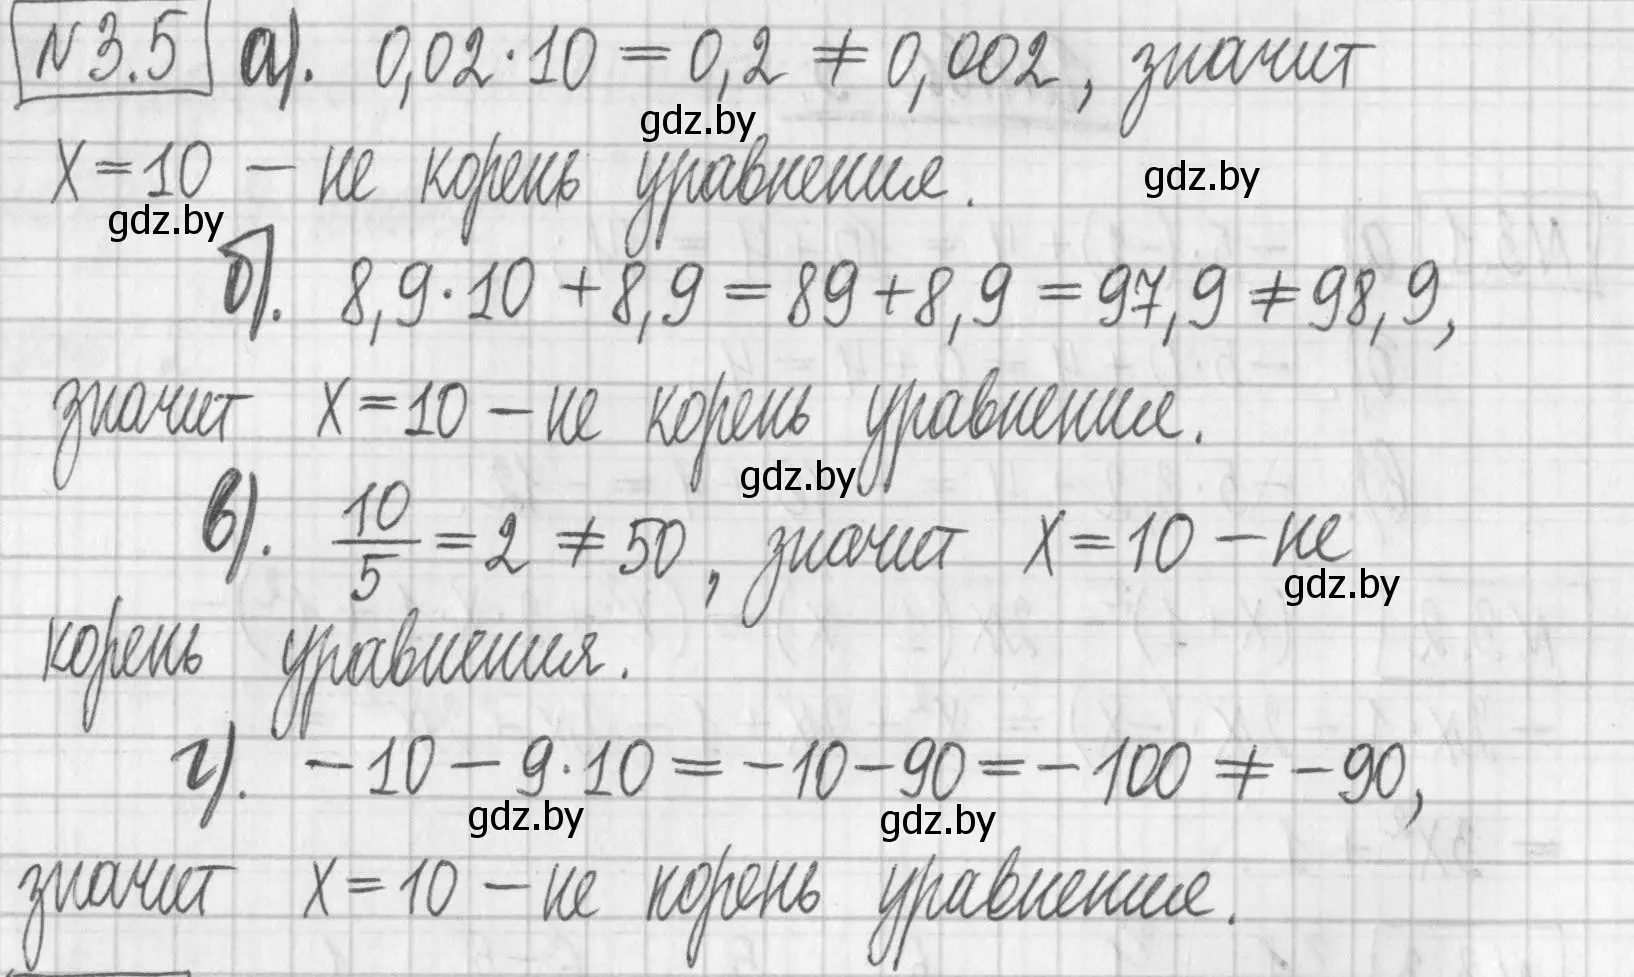 N 3.5 а). 0,02·10 = 0,2 ≠ 0,002, значит
gdz.by
x = 10 – не корень уравнения.
gdz.by
gdz.by
б). 8,9·10 + 8,9 = 89 + 8,9 = 97,9 ≠ 98,9,
значит x = 10 – не корень уравнение.
gdz.by
в). 10/5 = 2 ≠ 50, значит x = 10 – не
gdz.by
корень уравнения.
г). – 10 – 9·10 = – 10 – 90 = – 100 ≠ – 90,
gdz.by gdz.by
значит x = 10 – не корень уравнение.